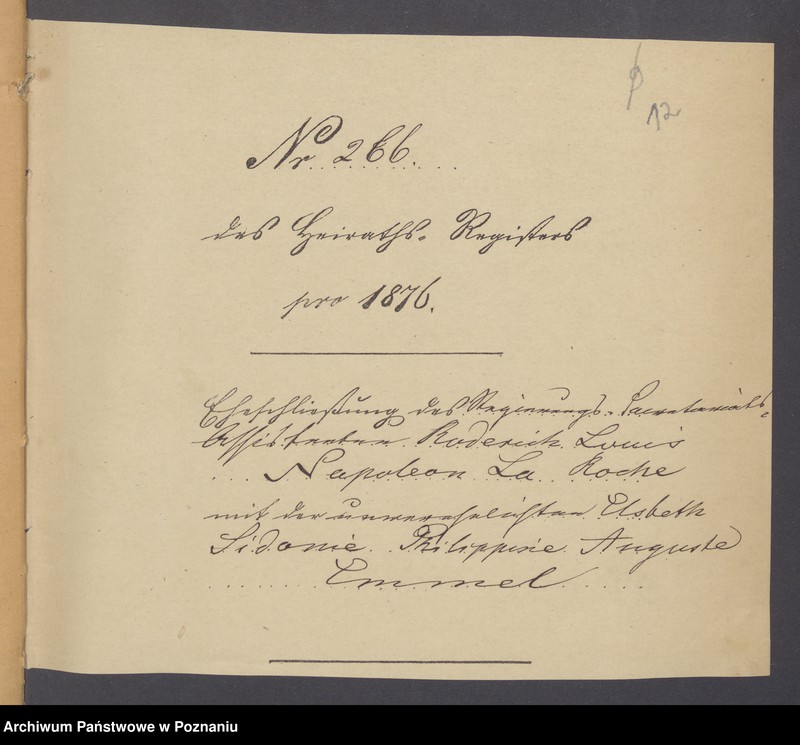 12
Nr 266.
des Heiraths-Registers
pro 1876.
Eheschließung des Regierungs-Secretariats-
Assistenten Roderich Louis
Napoleon La Roche
mit der unverehelichten Elsbeth
Sidonie Philippine Auguste
Emmel
Archiwum Państwowe w Poznaniu